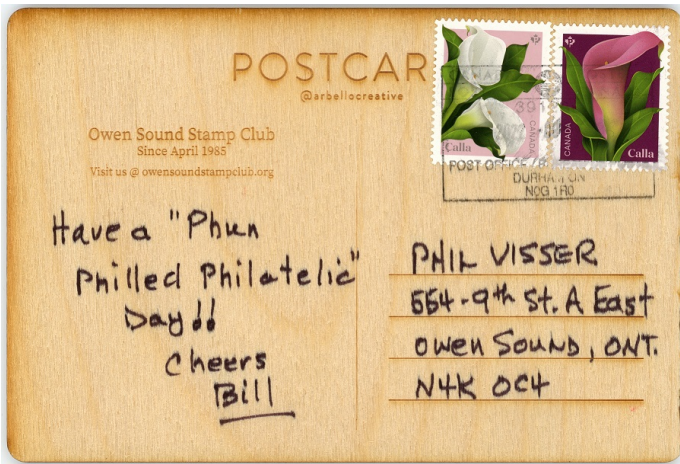 POSTCAR
@arbellocreative
Owen Sound Stamp Club
Since April 1985
Visit us @ owensoundstampclub.org
Calla
CANADA
Calla
CANADA
POST OFFICE
DURHAM ON
N0G 1R0
Have a "Phun
Philled Philatelic"
Day!!
Cheers
Bill
PHIL VISSER
554-9th St. A East
Owen Sound, ONT.
N4K 0C4